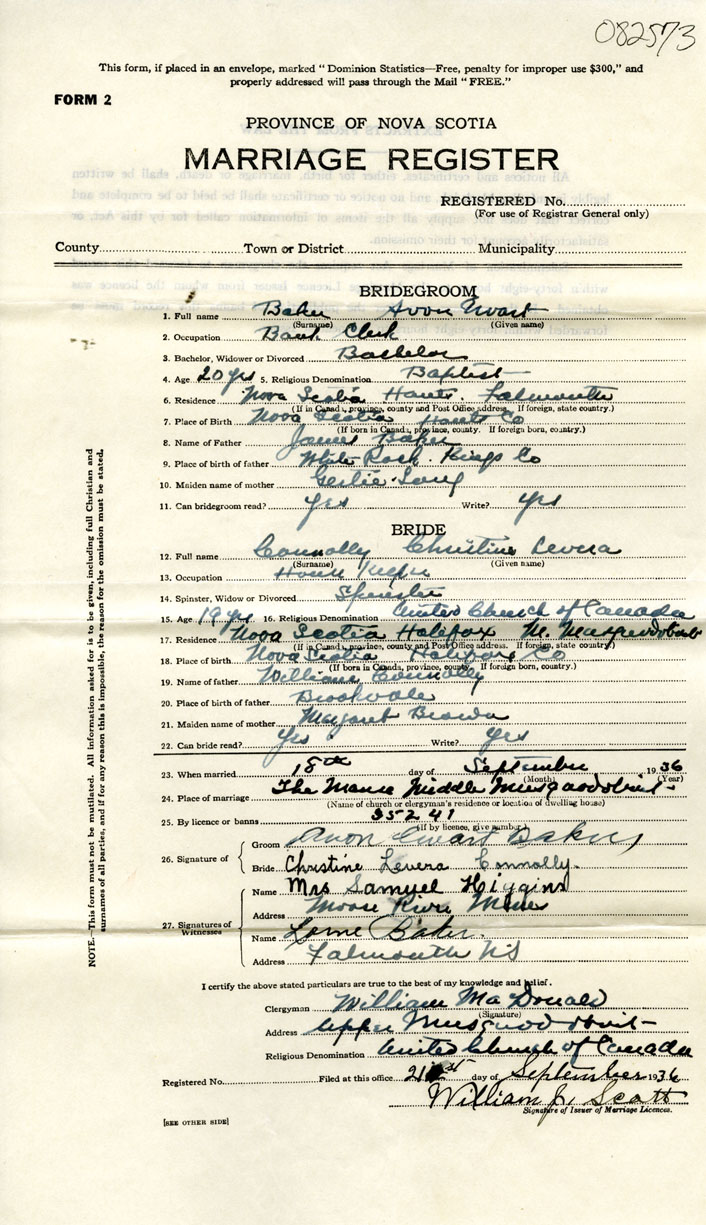 082573
This form, if placed in an envelope, marked "Dominion Statistics—Free, penalty for improper use $300," and
properly addressed will pass through the Mail "FREE."
FORM 2
PROVINCE OF NOVA SCOTIA
MARRIAGE REGISTER
REGISTERED No.
(For use of Registrar General only)
County Town or District Municipality
BRIDEGROOM
1. Full name Baker Avon Ewart
(Surname) (Given name)
2. Occupation Bank Clerk
3. Bachelor, Widower or Divorced Bachelor
4. Age 20 yrs 5. Religious Denomination Baptist
6. Residence Nova Scotia Hants. Falmouth
(If in Canada, province, county and Post Office address. If foreign, state country.)
7. Place of Birth Nova Scotia Hants Co
(If born in Canada, province, county. If foreign born, country.)
8. Name of Father James Baker
9. Place of birth of father White Rock. Kings Co
10. Maiden name of mother Long
11. Can bridegroom read? Yes Write? Yes
BRIDE
12. Full name Connolly Christine Levera
(Surname) (Given name)
13. Occupation House Keeper
14. Spinster, Widow or Divorced Spinster
15. Age 19 yrs 16. Religious Denomination United Church of Canada
17. Residence Nova Scotia Halifax M. Musquodoboit
(If in Canada, province, county and Post Office address. If foreign, state country.)
18. Place of birth Nova Scotia Halifax Co
(If born in Canada, province, county. If foreign born, country.)
19. Name of father William Connolly
20. Place of birth of father Brookvale
21. Maiden name of mother Margaret Brown
22. Can bride read? Yes Write? Yes
23. When married 18th day of September 1936
(Month) (Year)
24. Place of marriage The Manse Middle Musquodoboit
(Name of church or clergyman's residence or location of dwelling house)
25. By licence or banns 35241
(If by licence, give number)
26. Signature of
Groom Avon Ewart Baker
Bride Christine Levera Connolly.
27. Signatures of Witnesses
Name Mrs Samuel Higgins
Address Moose River Mines
Name Lorne Baker.
Address Falmouth NS
I certify the above stated particulars are true to the best of my knowledge and belief.
Clergyman William MacDonald
(Signature)
Address Upper Musquodoboit
Religious Denomination United Church of Canada
Registered No. Filed at this office 21st day of September 1936
William J. Scott
Signature of Issuer of Marriage Licences.
[SEE OTHER SIDE]
NOTE.—This form must not be mutilated. All information asked for is to be given, including full Christian and
surnames of all parties, and if for any reason this is impossible, the reason for the omission must be stated.